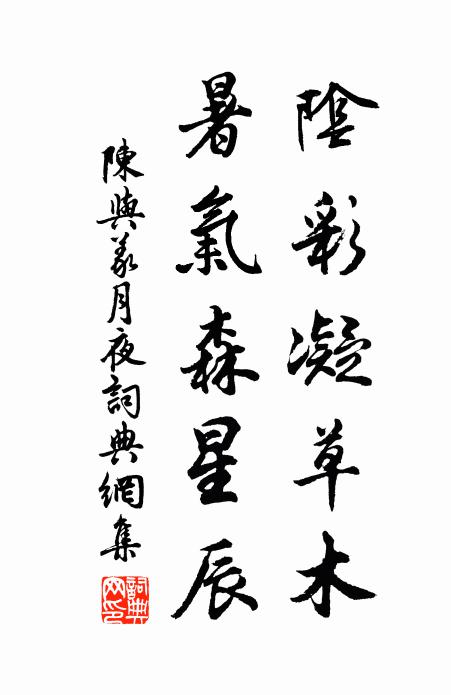 陰彩凝草木
暑氣森星辰
陳與義月夜詞典網集
詞典網印